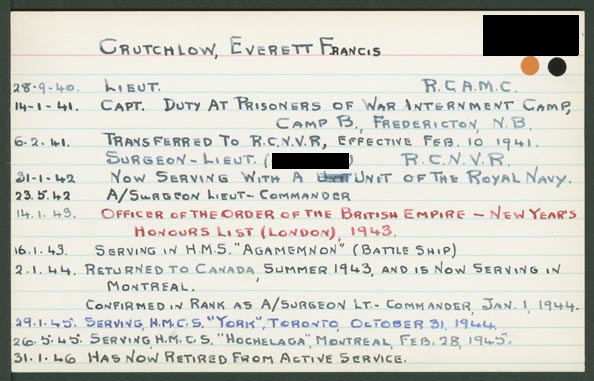 CRUTCHLOW, EVERETT FRANCIS
28-9-40. LIEUT. R.C.A.M.C.
14-1-41. CAPT. DUTY AT PRISONERS OF WAR INTERNMENT CAMP,
CAMP B., FREDERICTON, N.B.
6-2.41. TRANSFERRED TO R.C.N.V.R, EFFECTIVE FEB. 10 1941.
SURGEON-LIEUT. ( ) R.C.N.V.R.
31-1-42 NOW SERVING WITH A UNIT OF THE ROYAL NAVY.
23.5.42 A/SURGEON LIEUT-COMMANDER
14.1.43. OFFICER OF THE ORDER OF THE BRITISH EMPIRE - NEW YEAR'S
HONOURS LIST (LONDON), 1943.
16.1.43. SERVING IN H.M.S. "AGAMEMNON" (BATTLE SHIP)
2.1.44. RETURNED TO CANADA, SUMMER 1943, AND IS NOW SERVING IN
MONTREAL.
CONFIRMED IN RANK AS A/SURGEON LT.-COMMANDER, JAN. 1, 1944.
29.1.45. SERVING, H.M.C.S. "YORK", TORONTO, OCTOBER 31, 1944.
26.5.45. SERVING H.M.C.S. "HOCHELAGA", MONTREAL, FEB. 28, 1945.
31.1.46 HAS NOW RETIRED FROM ACTIVE SERVICE.